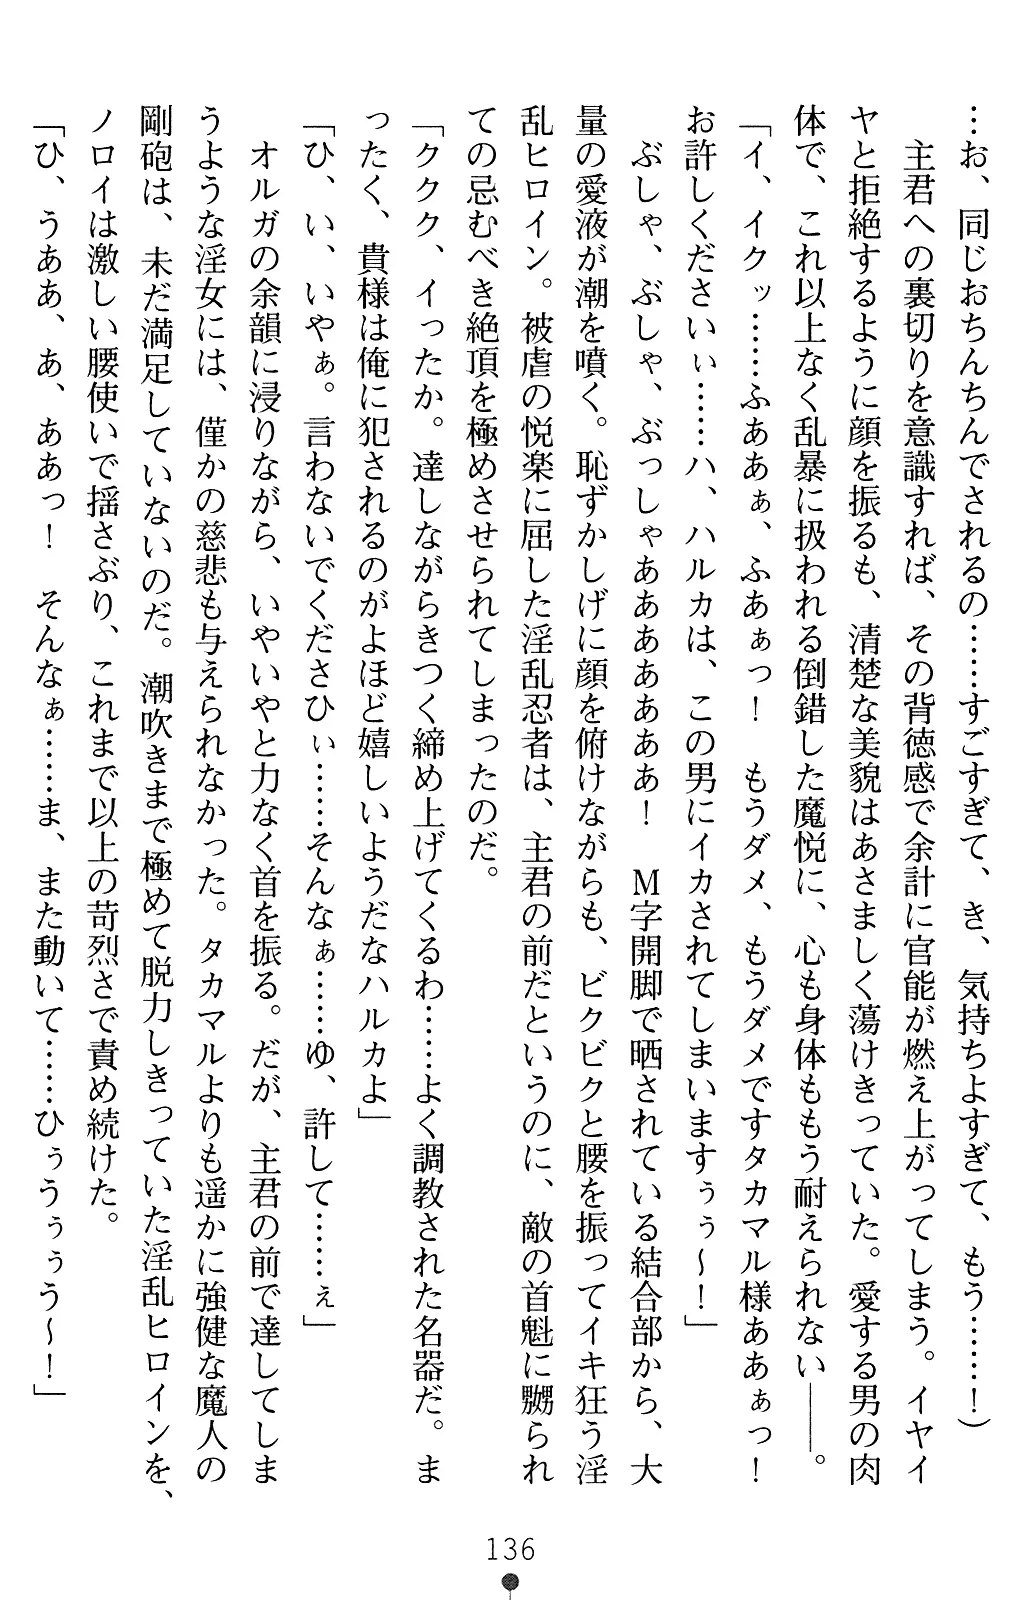 …お、同じおちんちんでされるの……すごすぎて、き、気持ちよすぎて、もう……！）
　主君への裏切りを意識すれば、その背徳感で余計に官能が燃え上がってしまう。イヤイ
ヤと拒絶するように顔を振るも、清楚な美貌はあさましく蕩けきっていた。愛する男の肉
体で、これ以上なく乱暴に扱われる倒錯した魔悦に、心も身体ももう耐えられない――。
「イ、イクッ……ふああぁ、ふあぁっ！　もうダメ、もうダメですタカマル様ああぁっ！
お許しくださいぃ……ハ、ハルカは、この男にイカされてしまいますぅぅ～！」
　ぶしゃ、ぶしゃ、ぶっしゃああああああぁ！　Ｍ字開脚で晒されている結合部から、大
量の愛液が潮を噴く。恥ずかしげに顔を俯けながらも、ビクビクと腰を振ってイキ狂う淫
乱ヒロイン。被虐の悦楽に屈した淫乱忍者は、主君の前だというのに、敵の首魁に嬲られ
ての忌むべき絶頂を極めさせられてしまったのだ。
「ククク、イったか。達しながらきつく締め上げてくるわ……よく調教された名器だ。ま
ったく、貴様は俺に犯されるのがよほど嬉しいようだなハルカよ」
「ひ、い、いやぁ。言わないでくださひぃ……そんなぁ……ゆ、許して……ぇ」
　オルガの余韻に浸りながら、いやいやと力なく首を振る。だが、主君の前で達してしま
うような淫女には、僅かの慈悲も与えられなかった。タカマルよりも遥かに強健な魔人の
剛砲は、未だ満足していないのだ。潮吹きまで極めて脱力しきっていた淫乱ヒロインを、
ノロイは激しい腰使いで揺さぶり、これまで以上の苛烈さで責め続けた。
「ひ、うああ、あ、ああっ！　そんなぁ……ま、また動いて……ひぅうぅぅう～！」
136